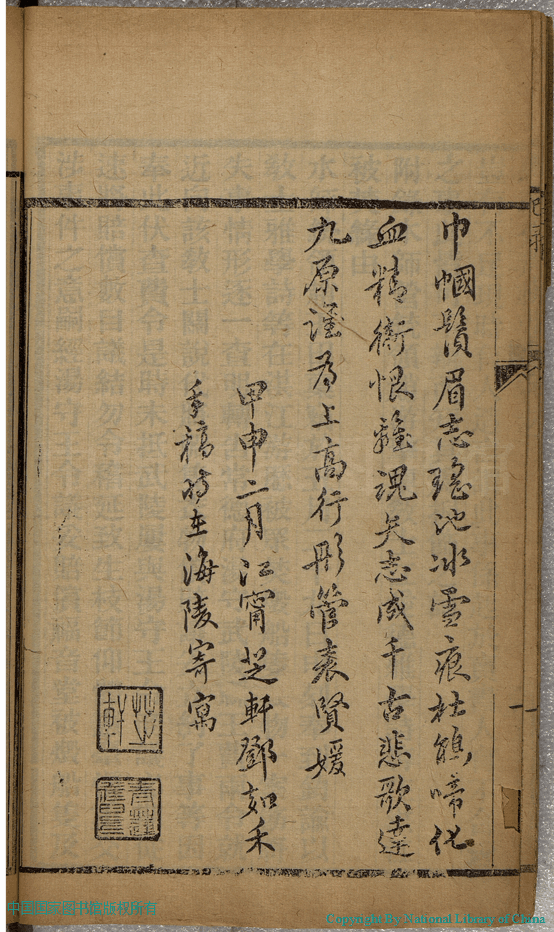 巾幗鬚眉志瑤池冰雪痕杜鵑啼化
血精衛恨難魂矢志成千古悲歌達
九原謹為上高行彤管表賢媛
甲申二月江甯芝軒鄧如禾
手稿時在海陵寄寓
芝軒
中国国家图书馆版权所有
Copyright By National Library of China